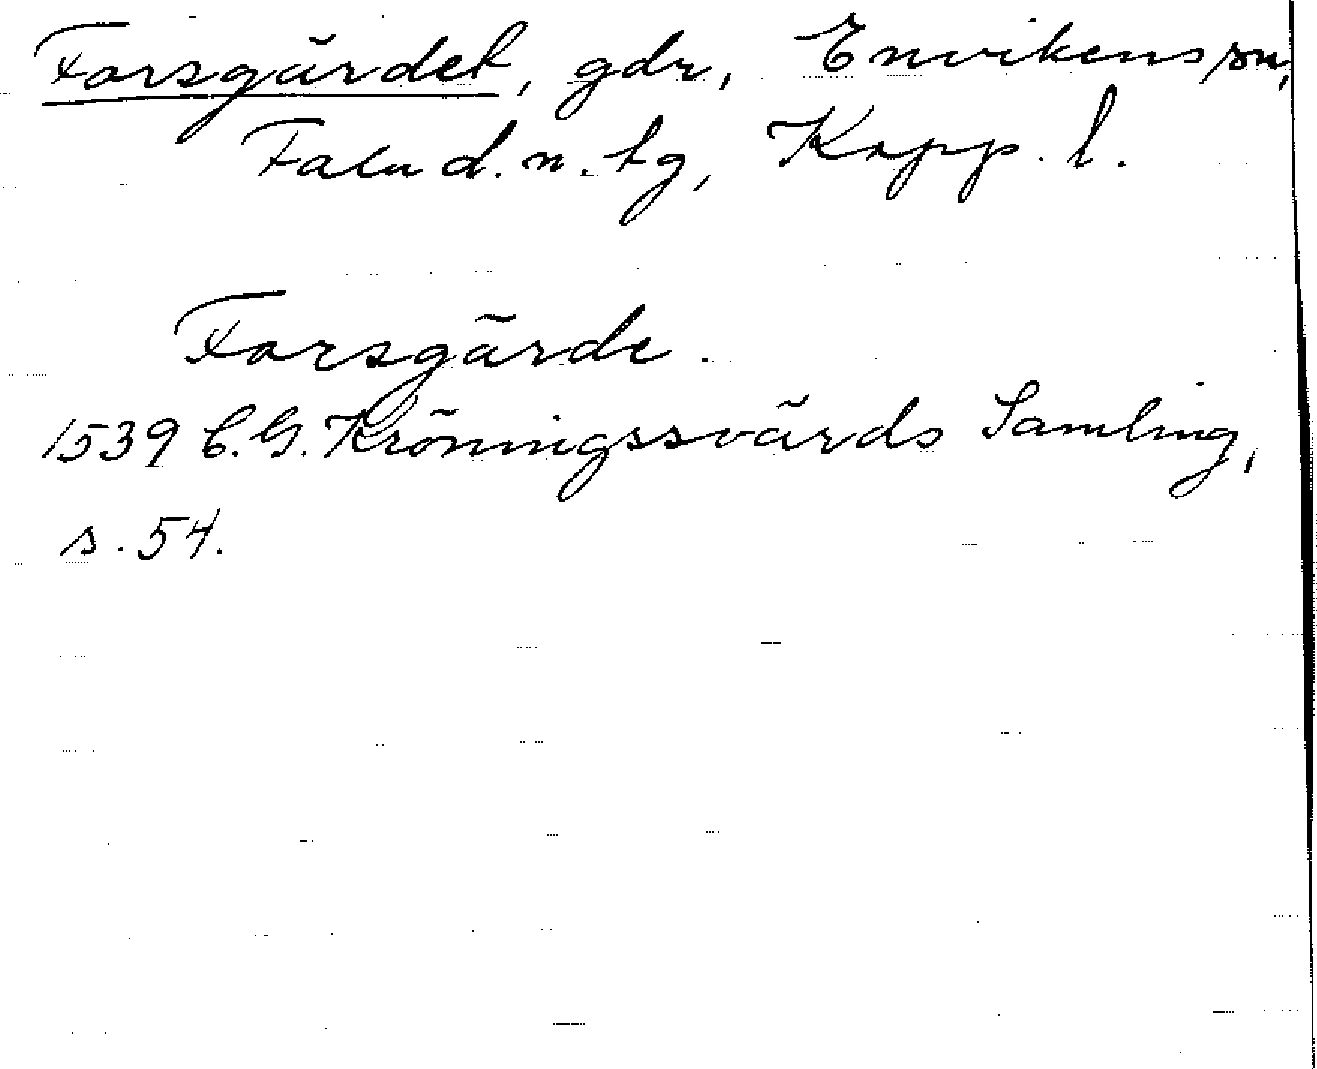 Forsgärdet, gdr, Envikens sn,
Falu d. n. tg, Kopp. l.
Forsgärde.
1539 C. G. Kröningssvärds Samling,
s. 54.